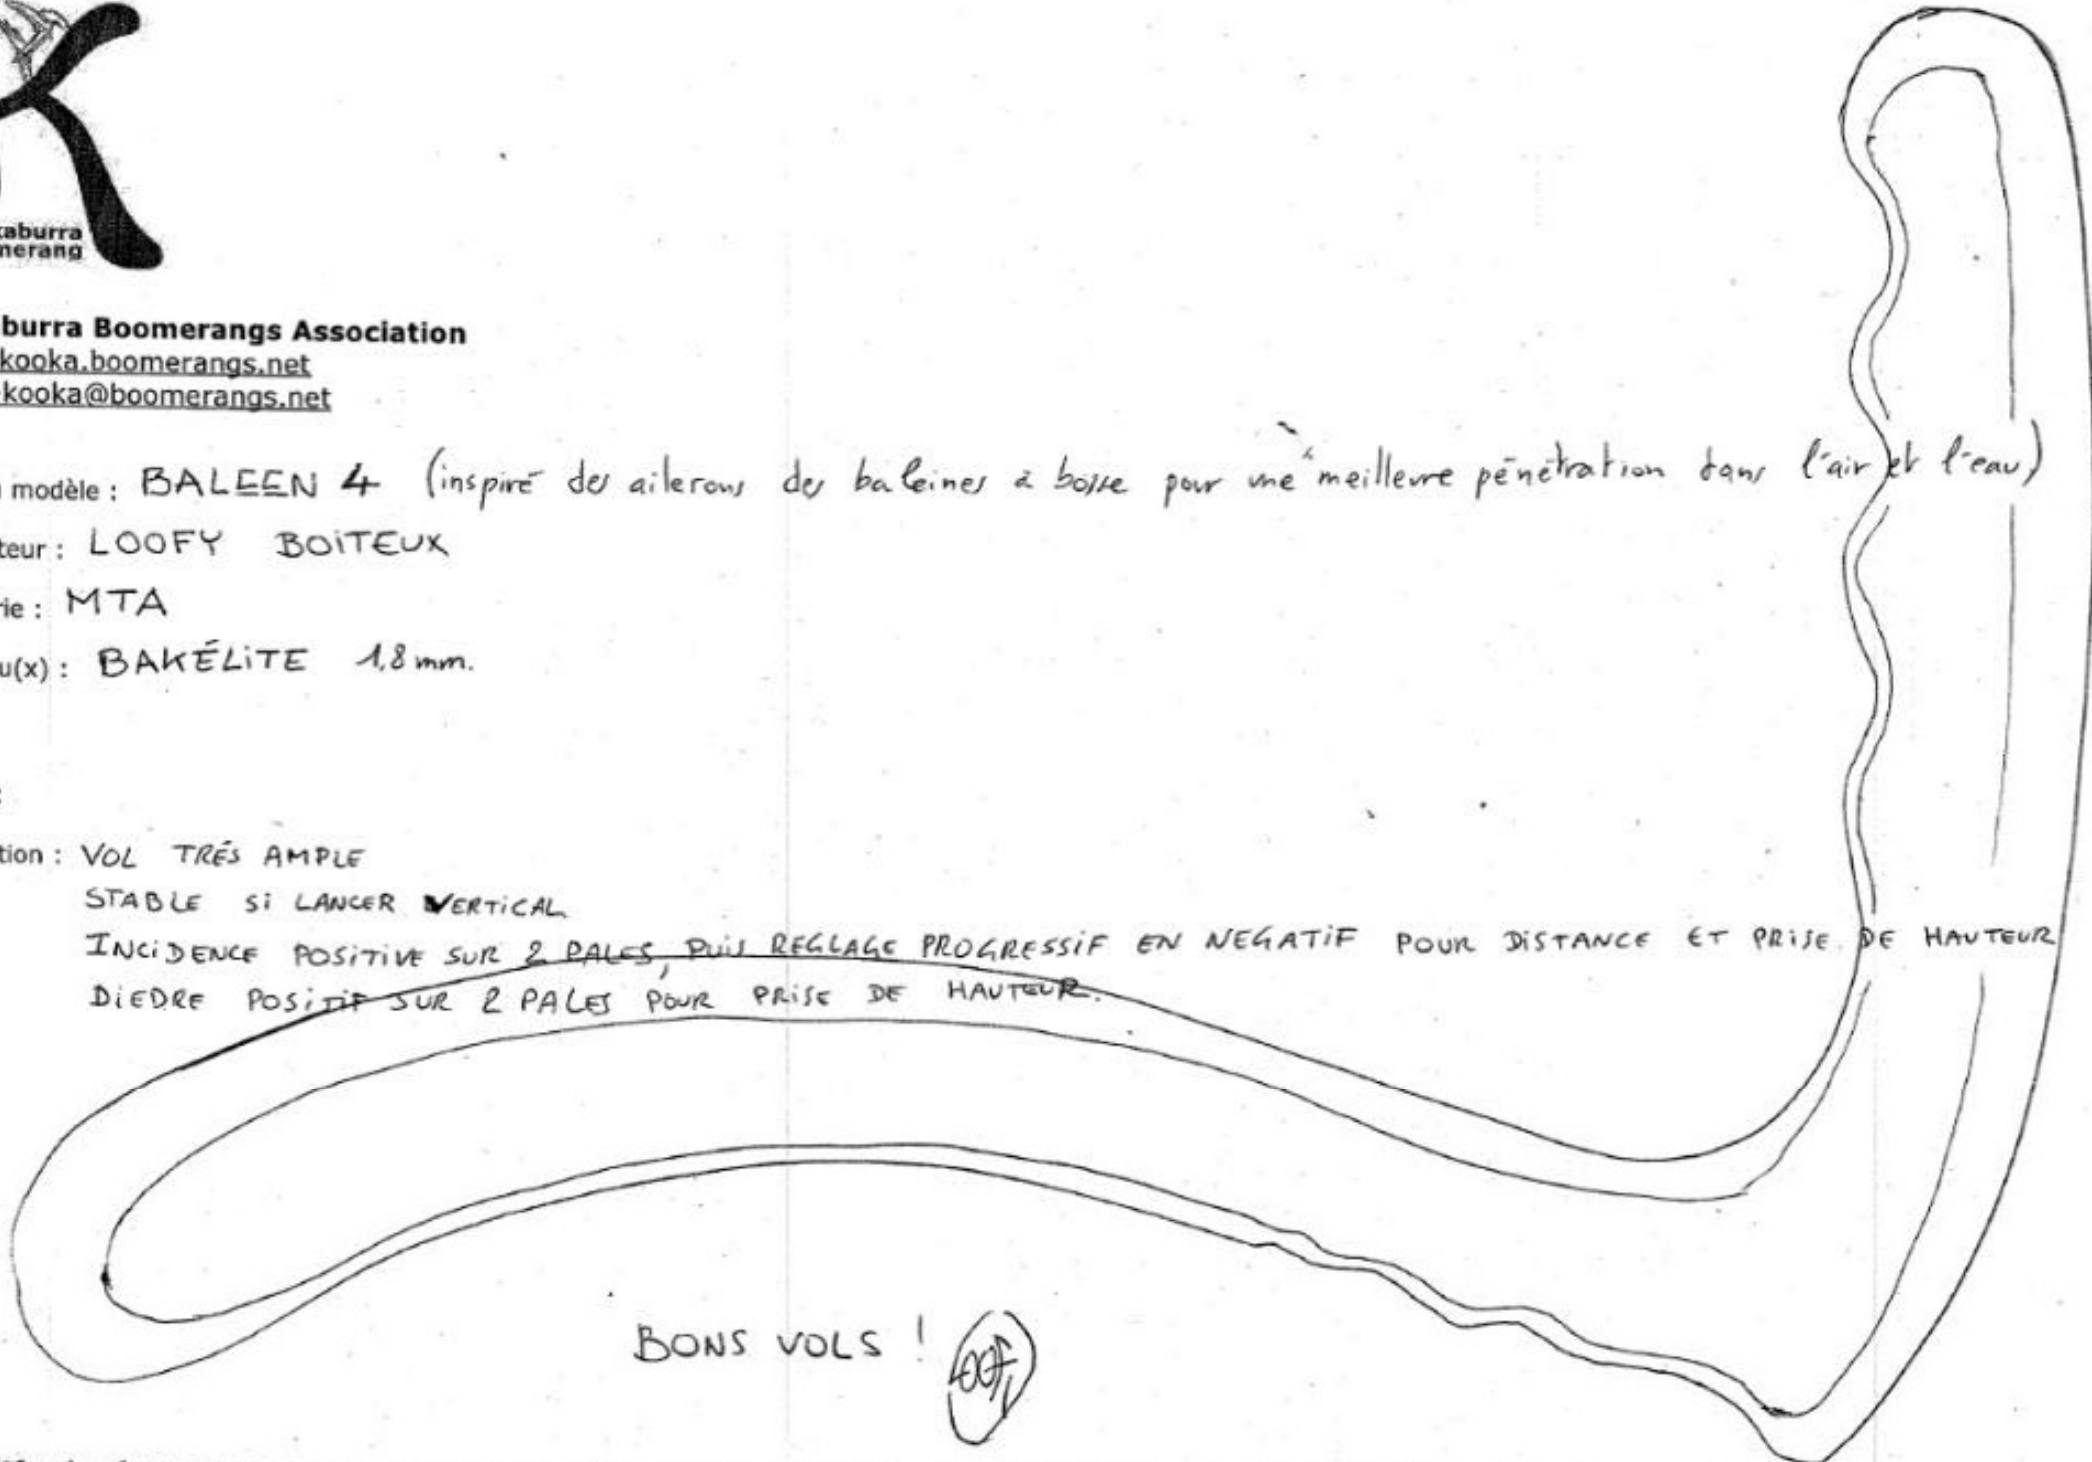 kaburra
merang
burra Boomerangs Association
kooka.boomerangs.net
kooka@boomerangs.net
modèle : BALEEN 4 (inspiré des ailerons des baleines à bosse pour une meilleure pénétration dans l'air et l'eau)
teur : LOOFY BOITEUX
rie : MTA
u(x) : BAKÉLITE 1,8 mm.
:
tion : VOL TRÉS AMPLE
STABLE Si LANCER VERTICAL
INCIDENCE POSITIVE SUR 2 PALES, PUIS REGLAGE PROGRESSIF EN NEGATIF POUR DISTANCE ET PRISE DE HAUTEUR
DIEDRE POSITIF SUR 2 PALES POUR PRISE DE HAUTEUR.
BONS VOLS !